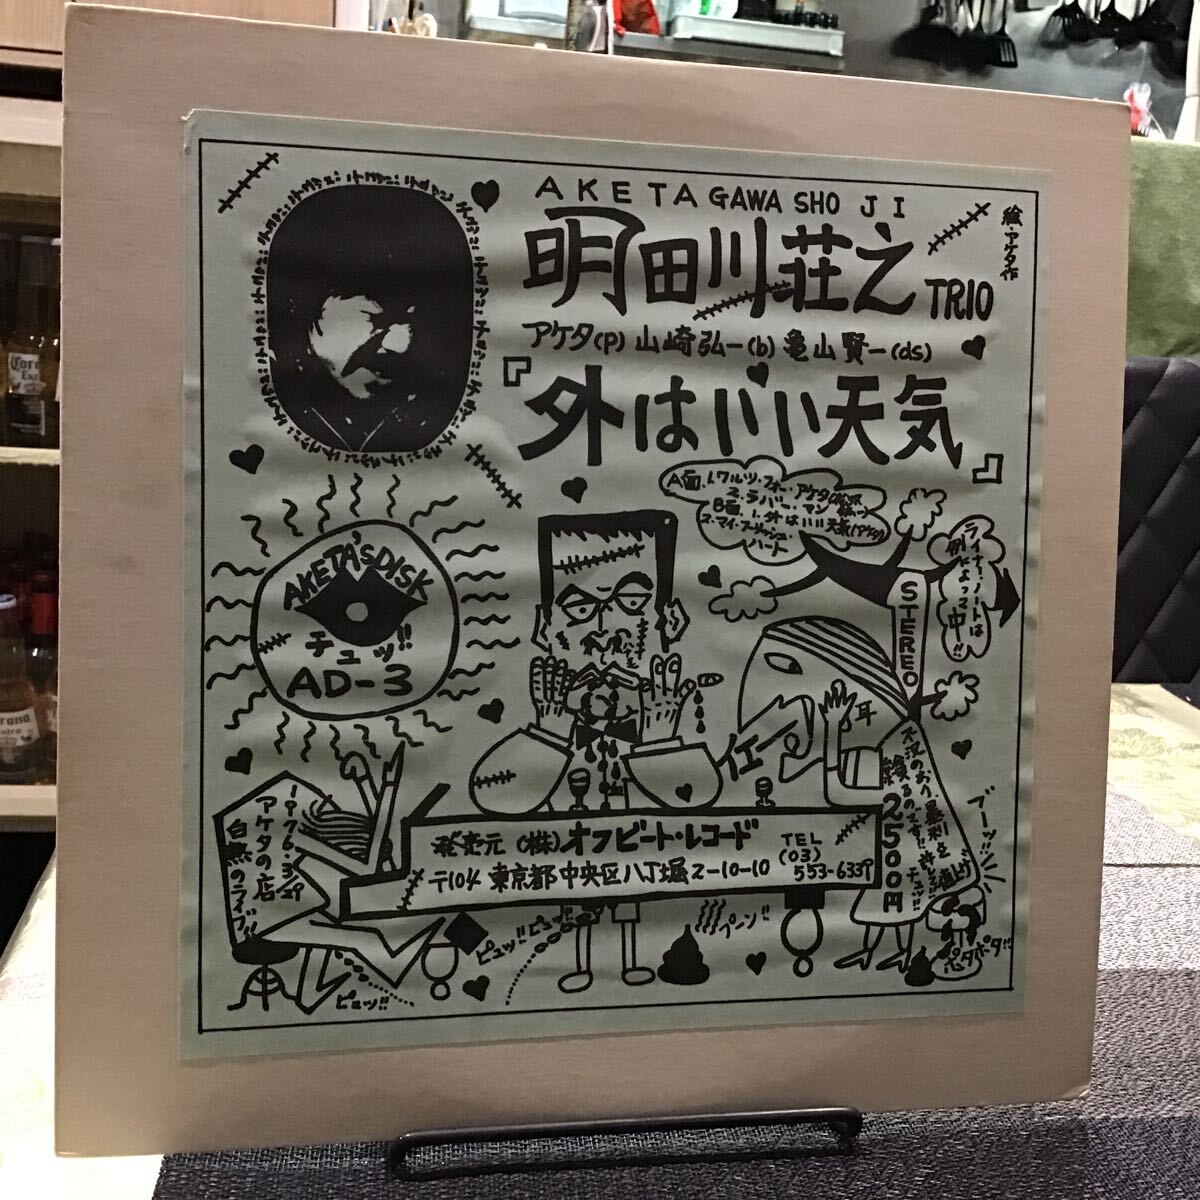 AKETAGAWA SHOJI
絵・アケタ作
明田川荘之 TRIO
アケタ(p) 山崎弘一(b) 亀山賢一(ds)
『外はいい天気』
A面.1.ワルツ・フォー・アケタ
2.ラバー・マン
B面.1.外はいい天気(アケタ)
2.マイ・フーリッシュ・
ハート
ライナーノートは
例によって中!!
STEREO
AKETA'S DISK
チュッ!!
AD-3
耳
不況のおり、
2500円
値上げ
ブーッ!!
1976.3.29
アケタの店
白熱のライブ!!
発売元 (株)オフビート・レコード
〒104 東京都中央区八丁堀2-10-10
TEL
(03)
553-6339
ピュッ!!ピュッ!!
ピュッ!!
プーン!!
ポタポタ!!